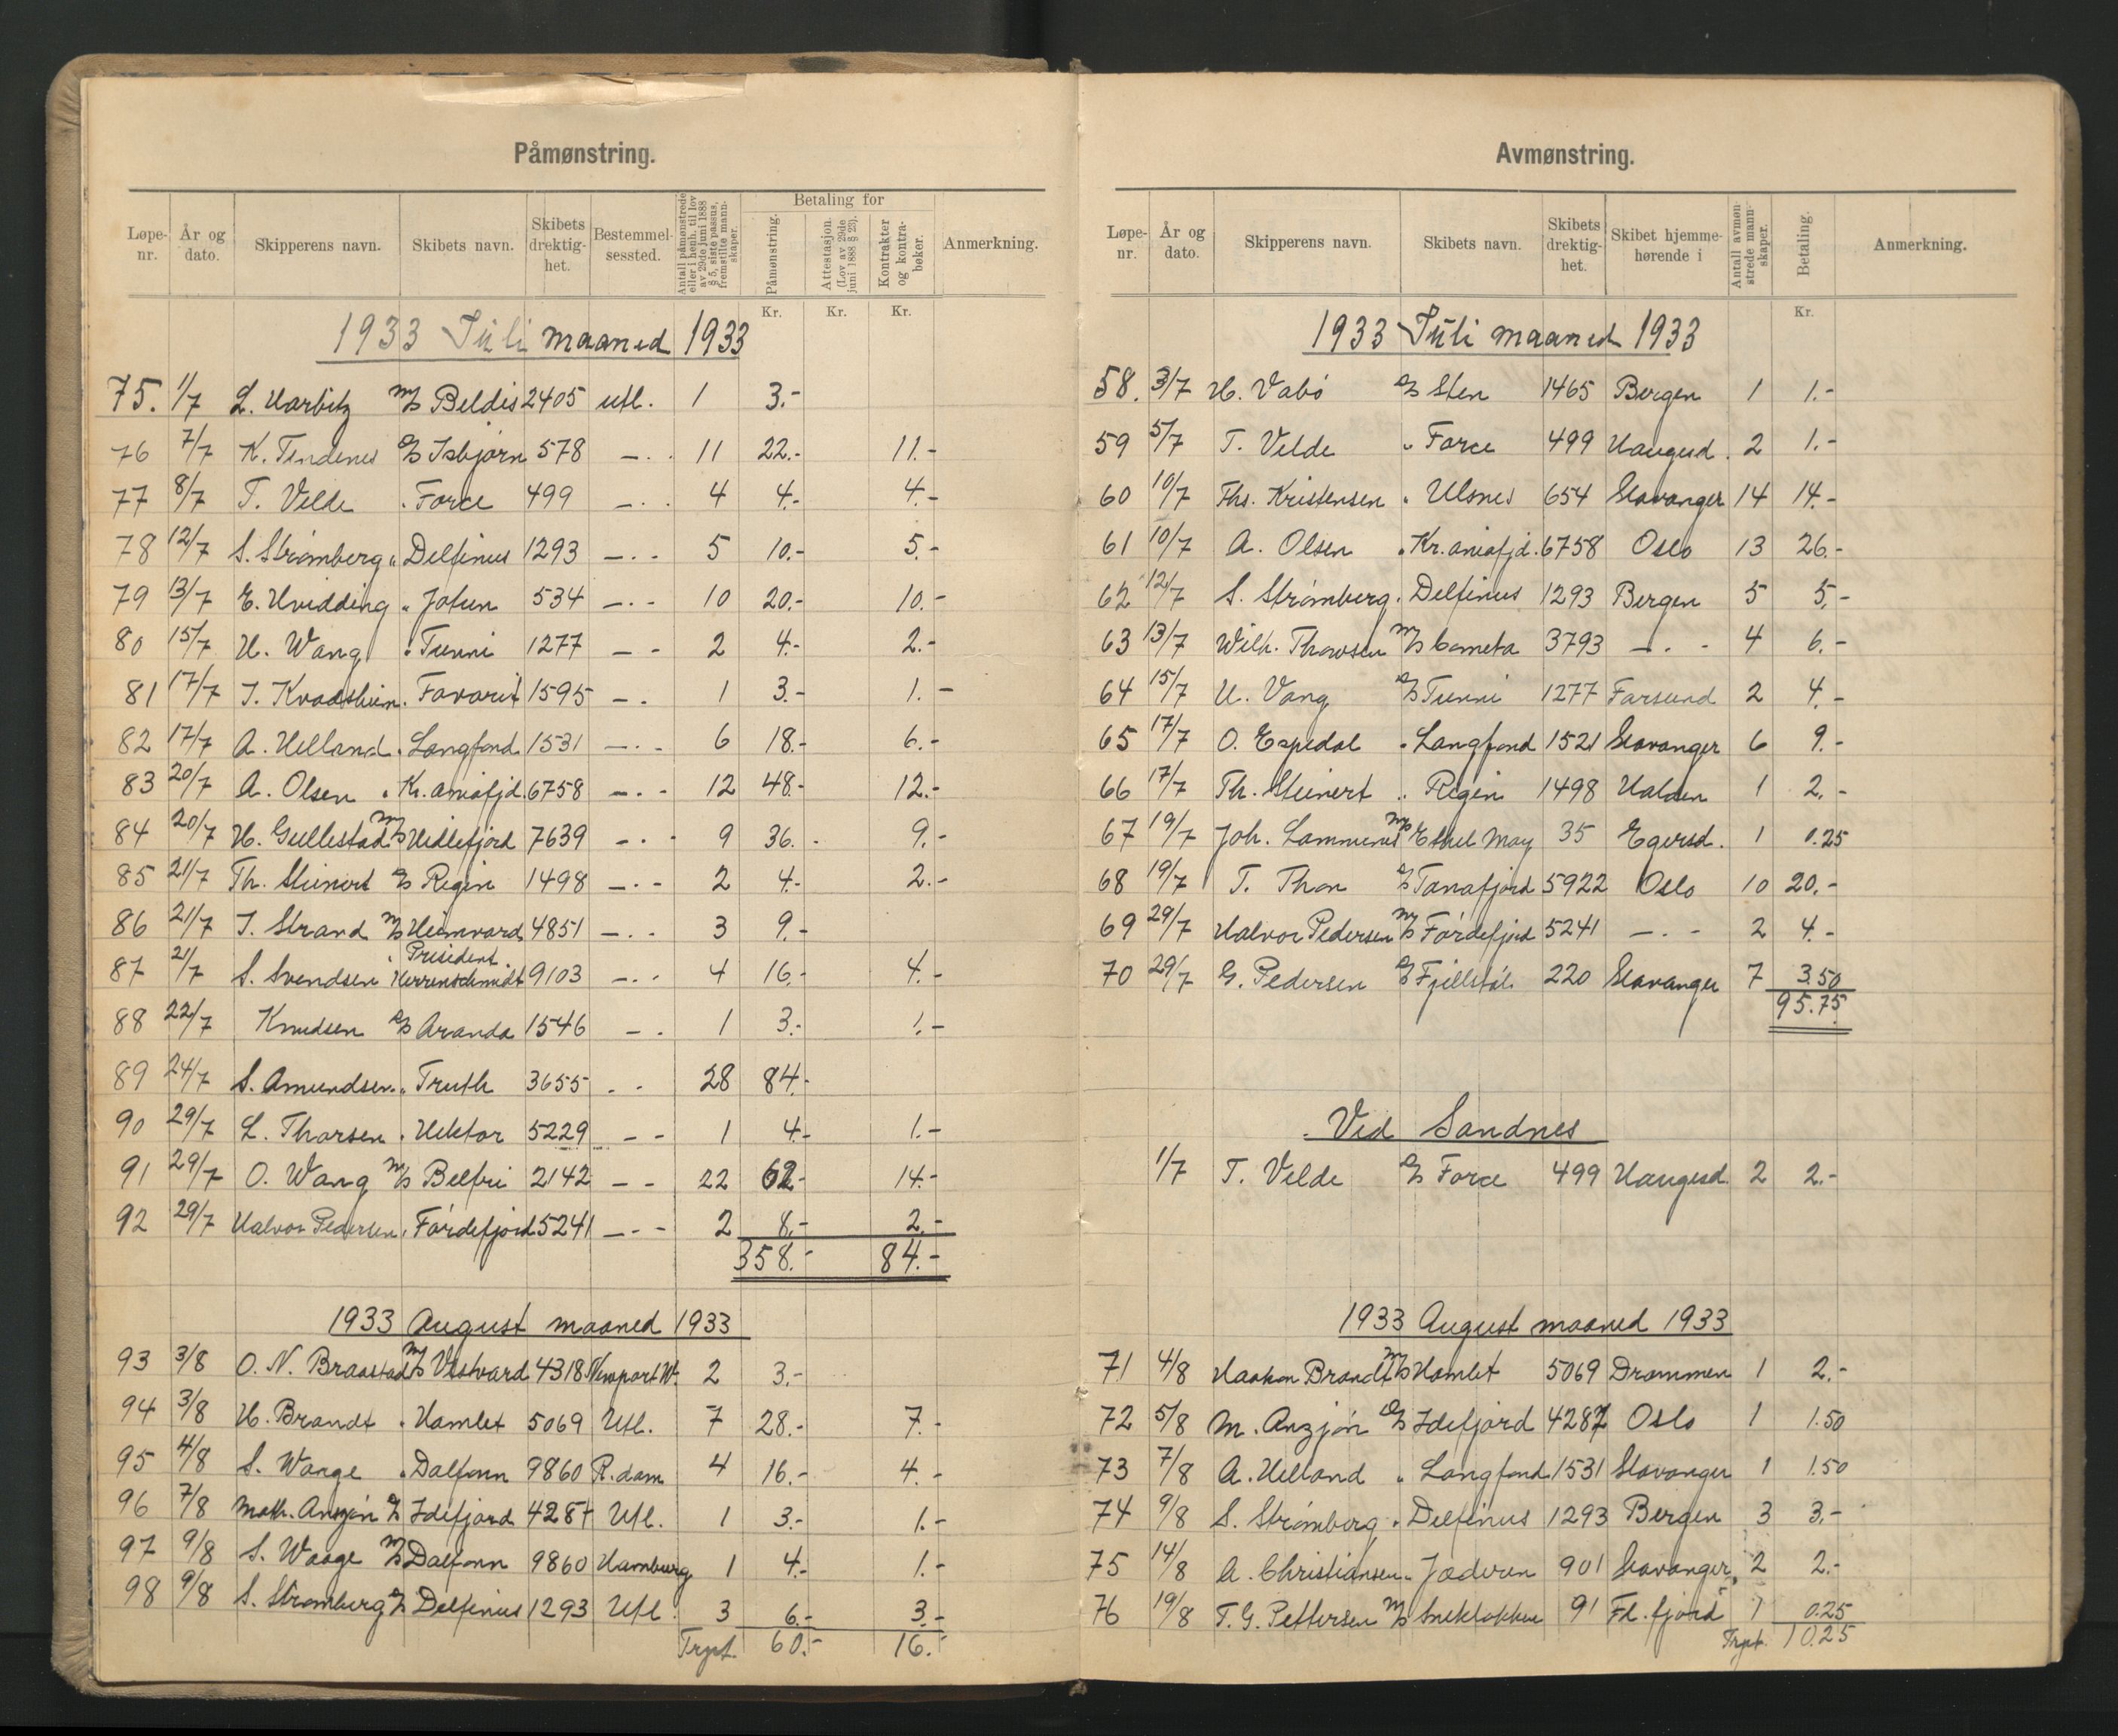 Påmønstring.
Løpe-nr. År og dato. Skipperens navn. Skibets navn. Skibets drektig-het. Bestemmel-sessted. Antall påmønstrede eller i henh. til lov av 29de juni 1888 § 5, siste passus, fremstilte mann-skaper. Betaling for Påmønstring. Attestasjon (Lov av 29de juni 1888 § 23). Kontrakter og kontra-bøker. Anmerkning.
Kr. Kr. Kr.
1933 Juli maaned 1933
75. 1/7 L. Harbitz M/S Beldis 2405 utl. 1 3.-
76 7/7 K. Tindenes S/S Isbjørn 578 -.. 11 22.- 11.-
77 8/7 T. Velde . Force 499 -.. 4 4.- 4.-
78 12/7 S. Strømberg " Delfinus 1293 -.- 5 10.- 5.-
79 13/7 E. Hvidding " Jotun 534 -.- 10 20.- 10.-
80 15/7 H. Wang " Tunni 1277 - - 2 4.- 2.-
81 17/7 J. Kvadsheim . Favorit 1595 -. 1 3.- 1.-
82 17/7 A. Helland . Langfond 1531 -.- 6 18.- 6.-
83 20/7 A. Olsen . Kr.aniafjd. 6758 -.- 12 48.- 12.-
84 20/7 H. Gullestad M/S Hidlefjord 7639 -.- 9 36.- 9.-
85 21/7 Th. Steinert S/S Regin 1498 -.- 2 4.- 2.-
86 21/7 J. Strand M/S Heimvard 4851 -.- 3 9.-
87 21/7 S. Svendsen " President Herrenschmidt 9103 -.- 4 16.- 4.-
88 22/7 Knudsen S/S Aranda 1546 -. 1 3.- 1.-
89 24/7 S. Amundsen . Truth 3655 . - 28 84.-
90 29/7 L. Thorsen . Hektor 5229 - - 1 4.- 1.-
91 29/7 O. Wang M/S Belfri 2142 - - 22 62.- 14.-
92 29/7 Halvor Pedersen . Førdefjord 5241 -.- 2 8.- 2.-
358.- 84.-
1933 August maaned 1933
93 3/8 O. N. Braastad M/S Vestvard 4318 Newport W. 2 3.-
94 3/8 H. Brandt . Hamlet 5069 Utl. 7 28.- 7.-
95 4/8 S. Waage . Dalfonn 9860 R.dam 4 16.- 4.-
96 7/8 Math. Anzjøn S/S Idefjord 4287 Utl. 1 3.- 1.-
97 9/8 S. Waage M/S Dalfonn 9860 Hamburg 1 4.- 1.-
98 9/8 S. Strømberg S/S Delfinus 1293 Utl. 3 6.- 3.-
Trpt. 60.- 16.-
Avmønstring.
Løpe-nr. År og dato. Skipperens navn. Skibets navn. Skibets drektig-het. Skibet hjemme-hørende i Antall avmøn-strede mann-skaper. Betaling. Anmerkning.
Kr.
1933 Juli maaned 1933
58. 3/7 H. Vabø S/S Sten 1465 Bergen 1 1.-
59 5/7 T. Velde " Force 499 Haugesd. 2 1.-
60 10/7 Ths. Kristensen " Ulsnes 654 Stavanger 14 14.-
61 10/7 A. Olsen " Kr.aniafjd. 6758 Oslo 13 26.-
62 12/7 S. Strømberg . Delfinus 1293 Bergen 5 5.-
63 13/7 Wilh. Thowsen M/S Cometa 3793 -. - 4 6.-
64 15/7 H. Vang S/S Tunni 1277 Farsund 2 4.-
65 17/7 O. Espedal " Langfond 1521 Stavanger 6 9.-
66 17/7 Th. Steinert " Regin 1498 Halden 1 2.-
67 19/7 Joh. Lammenes M/S Ethel May 35 Egersd. 1 0.25
68 19/7 T. Thon S/S Tanafjord 5922 Oslo 10 20.-
69 29/7 Halvor Pedersen M/S Førdefjord 5241 -.- 2 4.-
70 29/7 G. Pedersen S/S Fjellstøl 220 Stavanger 7 3.50
95.75
Ved Sandnes
1/7 T. Velde S/S Force 499 Haugesd. 2 2.-
1933 August maaned 1933
71 4/8 Haakon Brandt M/S Hamlet 5069 Drammen 1 2.-
72 5/8 M. Anzjøn S/S Idefjord 4287 Oslo 1 1.50
73 7/8 A. Helland " Langfond 1531 Stavanger 1 1.50
74 9/8 S. Strømberg . Delfinus 1293 Bergen 3 3.-
75 14/8 A. Christiansen " Jæderen 901 Stavanger 2 2.-
76 19/8 T. G. Pettersen M/S 91 Fl. fjord 1 0.25
Trpt. 10.25